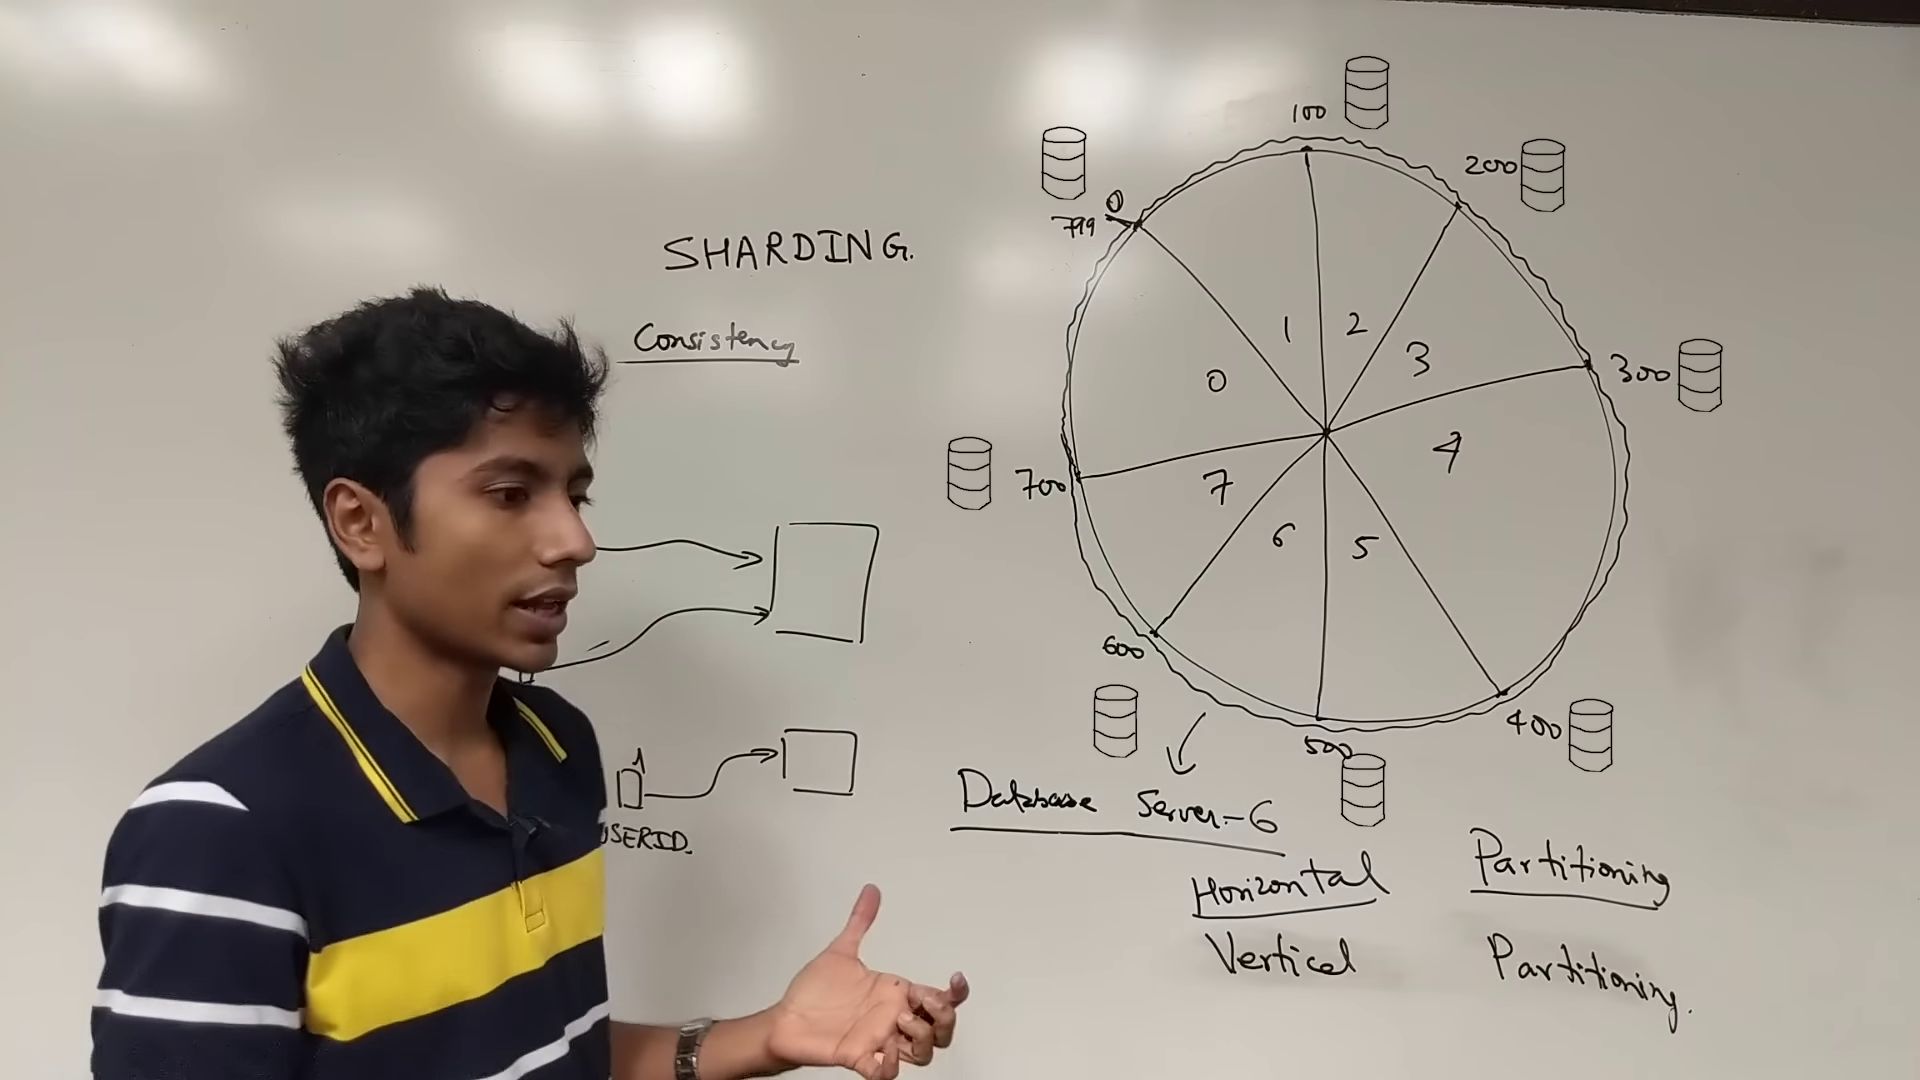 SHARDING.
Consistency
USERID.
100
200
300
400
500
600
700
799
0
0
1
2
3
4
5
6
7
Database Server-6
Horizontal Partitioning
Vertical Partitioning.